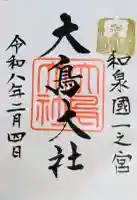 和泉國一之宮
大鳥大社
令和八年二月四日